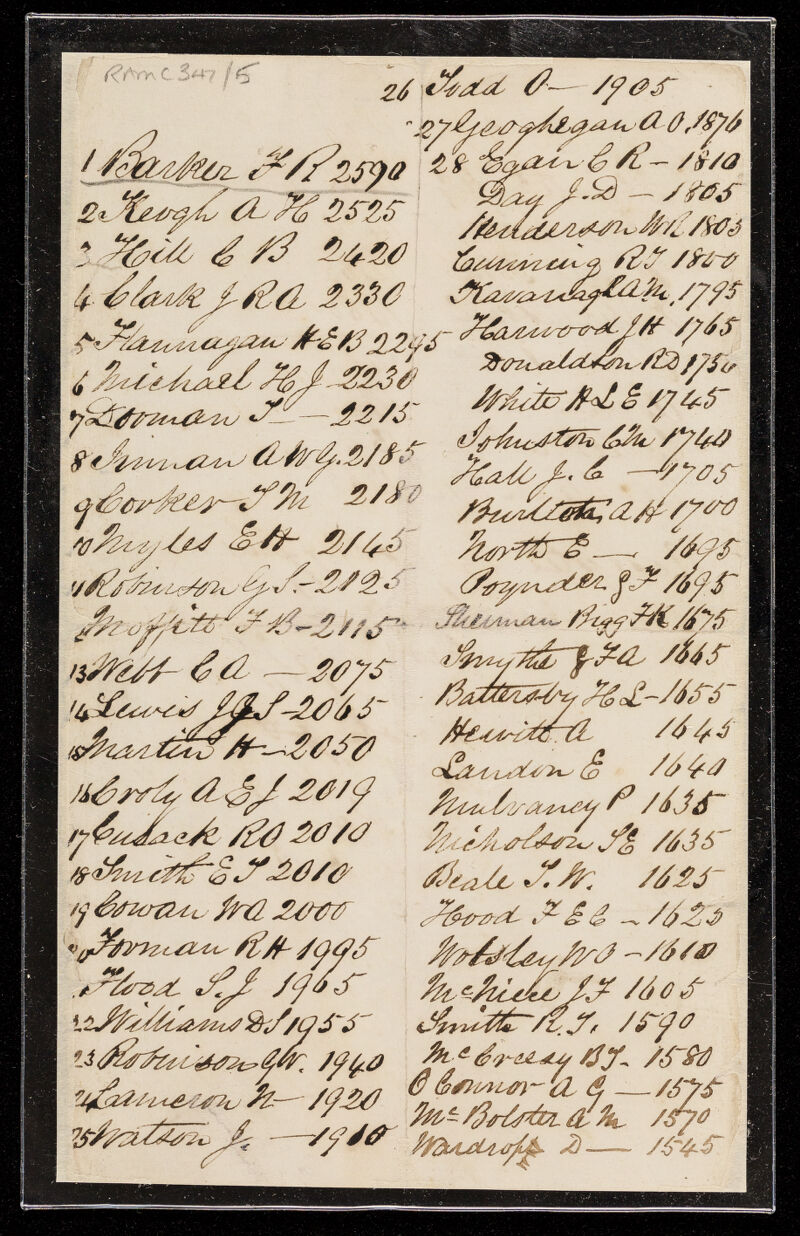 RAMC 347/5
1 Barker F R 2590
2 Keogh A H 2525
3 Hill C B 2420
4 Clark J R A 2330
5 Flannagan H E B 2295
6 Michael H J - 2230
7 Dorman T — 2215
8 Inman A W G. 2185
9 Corker T M 2180
10 Myles E H 2145
11 Robinson G S. - 2125
12 Moffitt F B - 2115
13 Webb C A — 2075
14 Lewis J J S - 2065
15 Martin H — 2050
16 Croly A E J 2019
17 Cusack R O 2010
18 Smith E T 2010
19 Cowan W A 2000
20 Forman R H 1995
Flood S. J 1965
22 Williams D S 1955
23 Robinson G W. 1940
24 Cameron N — 1920
25 Watson J. — 1910
26 Todd O — 1905
27 Geoghegan A O. 1876
28 Egan C R — 1810
Day J. D — 1805
Henderson W R 1803
Cumming R T 1800
Kavanagh A M. 1795
Harwood J H 1765
Donaldson R D 1750
White H L E 1745
Johnston C M 1740
Hall J. C — 1705
Burlton A H 1700
North E — 1695
Poynder J F 1695
Sherman Bigg F K 1675
Smythe J F A 1665
Battersby H L - 1655
Hewitt A 1645
Landon E 1640
Mulvaney P 1635
Nicholson J E 1635
Beale T. W. 1625
Hood F E C - 1623
Wolsley W O - 1610
McNiece J F 1605
Smith R. T. 1590
McCreesy B T. 1580
O Connor A G — 1575
McBolster A M 1570
Wardrop D — 1545